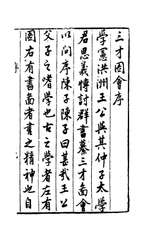 三才圖會序
學憲洪洲王公與其仲子太學
君思義博討群書纂三才圖會
以問序陳子陳子曰甚哉王公
父子之嗜學也古之學者左有
圖右有書圖者書之精神也自